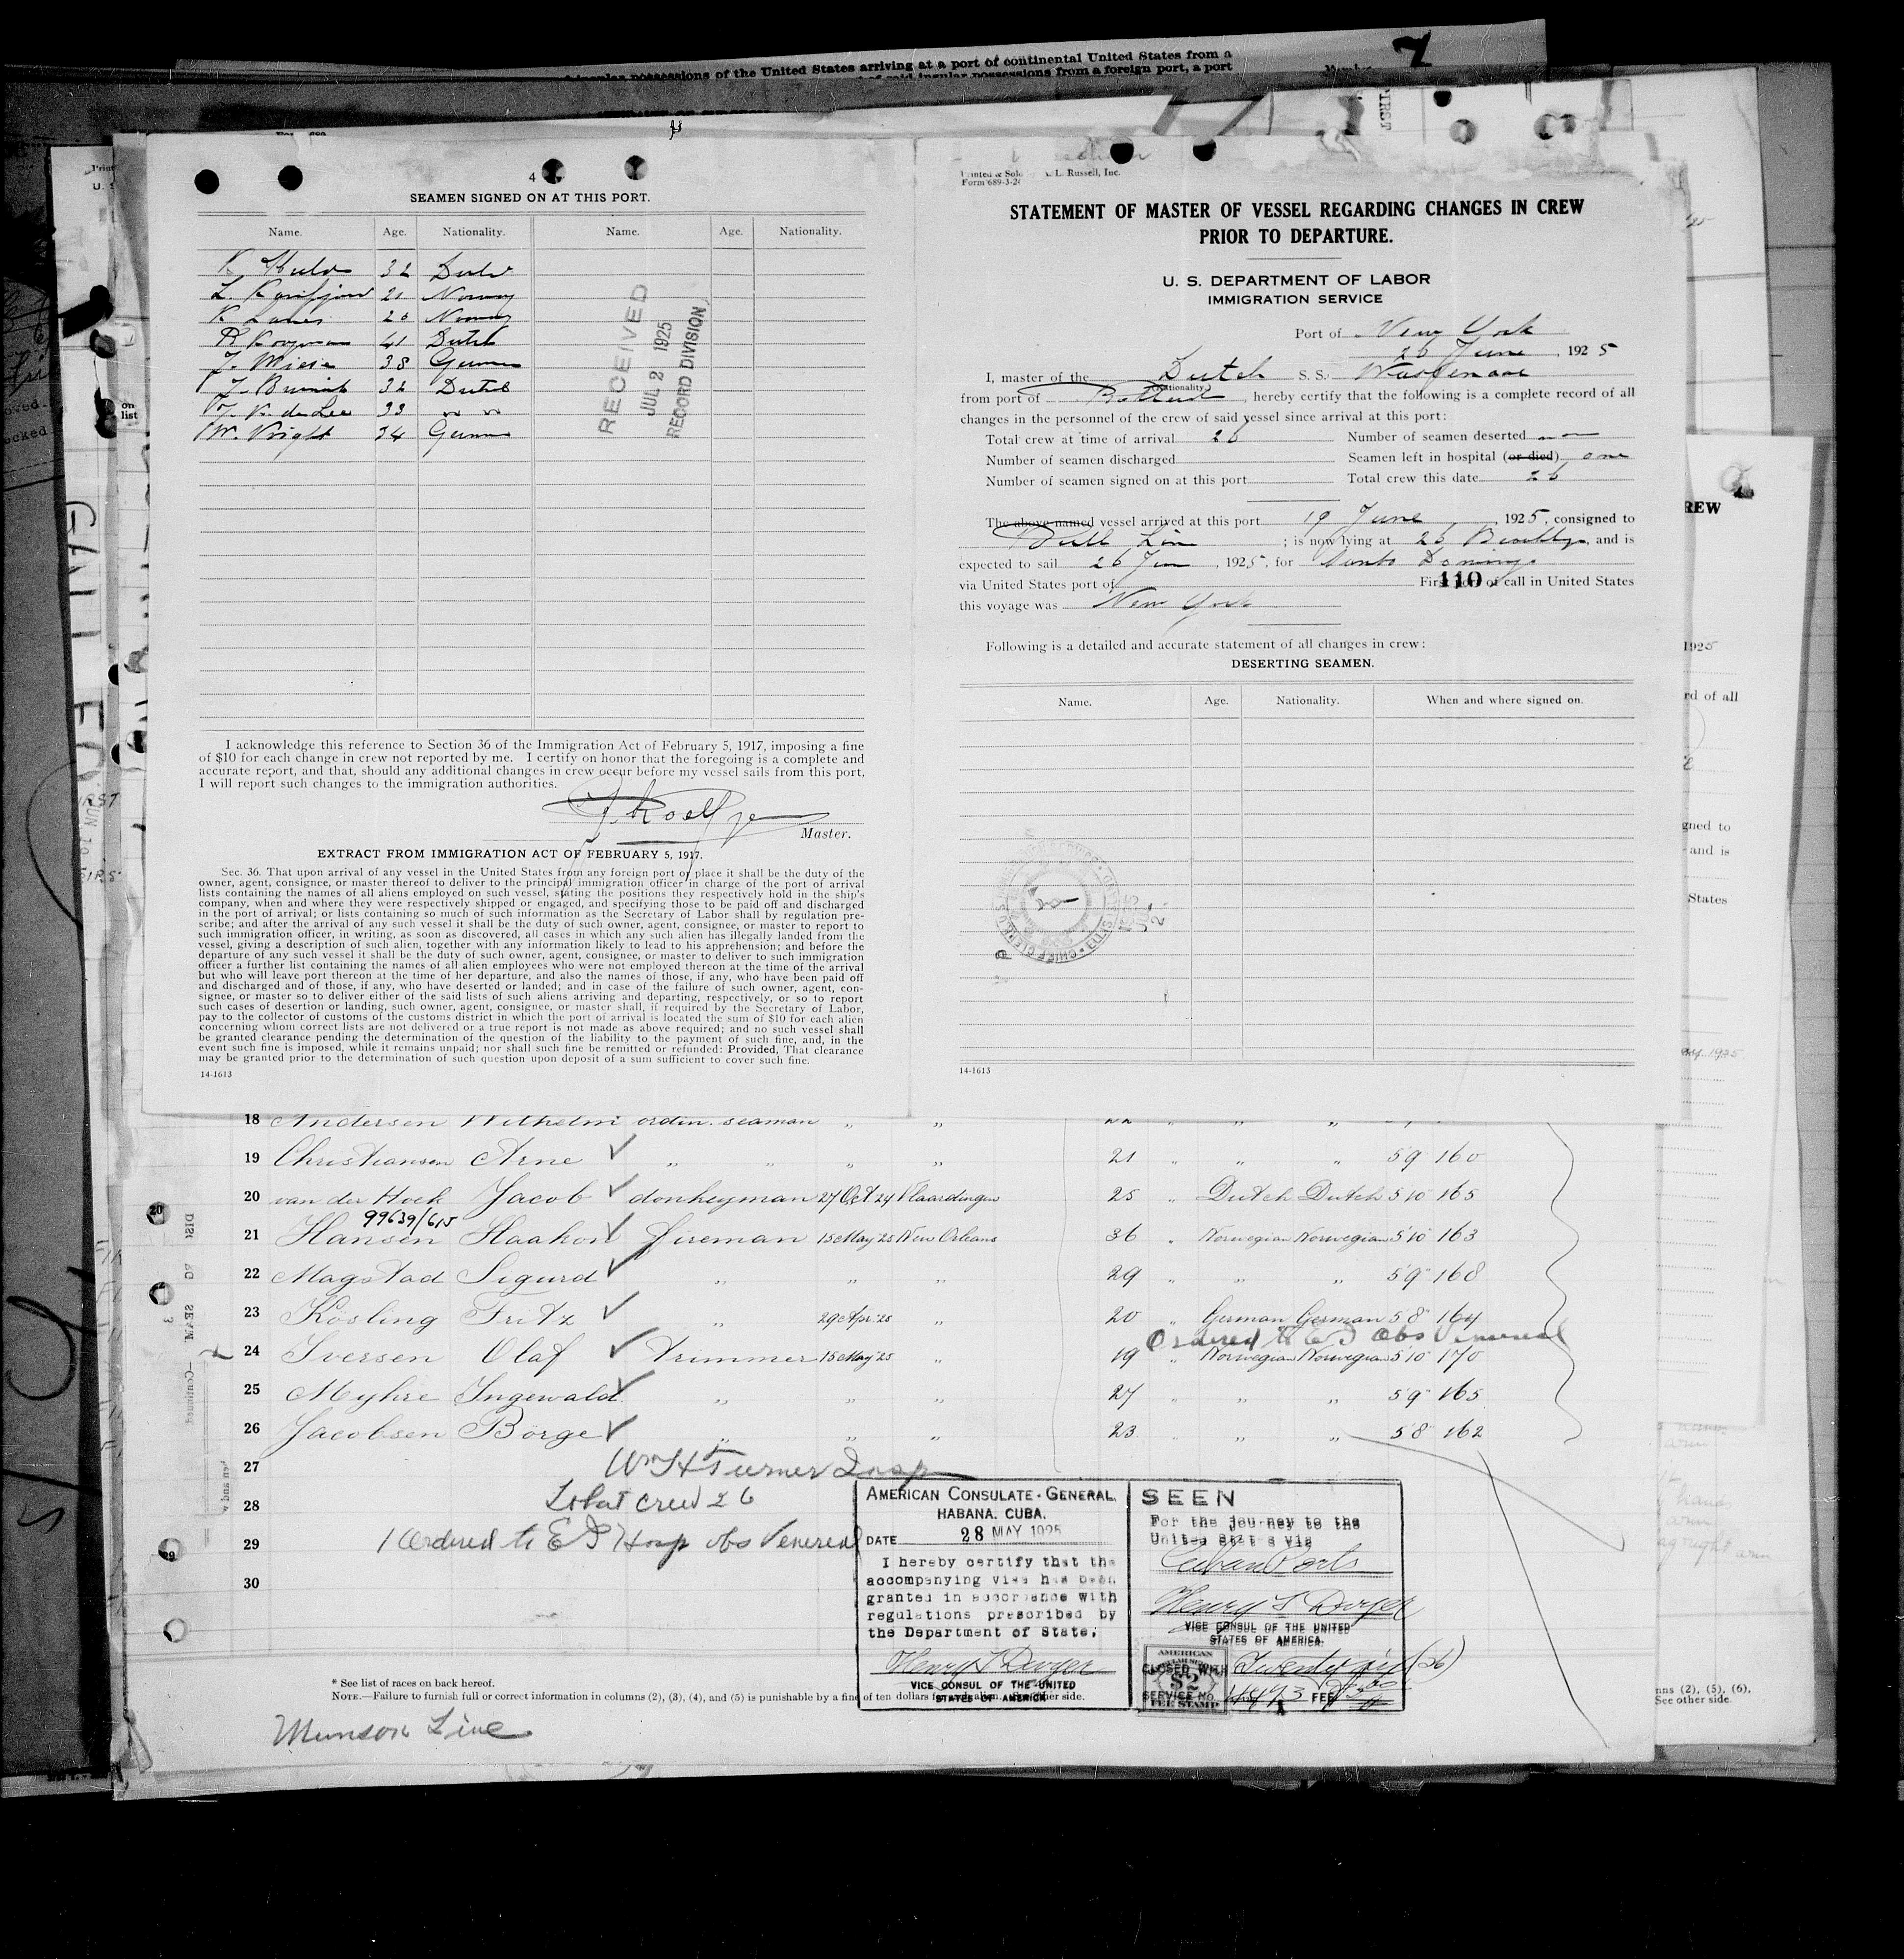 insular possessions of the United States arriving at a port of continental United States from a
of said insular possessions from a foreign port, a port
7
4
SEAMEN SIGNED ON AT THIS PORT.
Name. Age. Nationality. Name. Age. Nationality.
K. 32 Dutch
L. 21 Norway
K. 20 Norway
41 Dutch
J. Wiese 38 German
J. 32 Dutch
J. V. der Lee 33 " "
W. Voight 34 German
RECEIVED
JUL 2 1925
RECORD DIVISION
I acknowledge this reference to Section 36 of the Immigration Act of February 5, 1917, imposing a fine
of $10 for each change in crew not reported by me. I certify on honor that the foregoing is a complete and
accurate report, and that, should any additional changes in crew occur before my vessel sails from this port,
I will report such changes to the immigration authorities.
Master.
EXTRACT FROM IMMIGRATION ACT OF FEBRUARY 5, 1917.
Sec. 36. That upon arrival of any vessel in the United States from any foreign port or place it shall be the duty of the
owner, agent, consignee, or master thereof to deliver to the principal immigration officer in charge of the port of arrival
lists containing the names of all aliens employed on such vessel, stating the positions they respectively hold in the ship's
company, when and where they were respectively shipped or engaged, and specifying those to be paid off and discharged
in the port of arrival; or lists containing so much of such information as the Secretary of Labor shall by regulation pre-
scribe; and after the arrival of any such vessel it shall be the duty of such owner, agent, consignee, or master to report to
such immigration officer, in writing, as soon as discovered, all cases in which any such alien has illegally landed from the
vessel, giving a description of such alien, together with any information likely to lead to his apprehension; and before the
departure of any such vessel it shall be the duty of such owner, agent, consignee, or master to deliver to such immigration
officer a further list containing the names of all alien employees who were not employed thereon at the time of the arrival
but who will leave port thereon at the time of her departure, and also the names of those, if any, who have been paid off
and discharged and of those, if any, who have deserted or landed; and in case of the failure of such owner, agent, con-
signee, or master so to deliver either of the said lists of such aliens arriving and departing, respectively, or so to report
such cases of desertion or landing, such owner, agent, consignee, or master shall, if required by the Secretary of Labor,
pay to the collector of customs of the customs district in which the port of arrival is located the sum of $10 for each alien
concerning whom correct lists are not delivered or a true report is not made as above required; and no such vessel shall
be granted clearance pending the determination of the question of the liability to the payment of such fine, and, in the
event such fine is imposed, while it remains unpaid; nor shall such fine be remitted or refunded: Provided, That clearance
may be granted prior to the determination of such question upon deposit of a sum sufficient to cover such fine.
14-1613
Printed & Sold L. Russell, Inc.
Form 689-3-2
STATEMENT OF MASTER OF VESSEL REGARDING CHANGES IN CREW
PRIOR TO DEPARTURE.
U. S. DEPARTMENT OF LABOR
IMMIGRATION SERVICE
Port of New York
26 June, 1925
I, master of the Dutch S. S. Wassenaar
(Nationality)
from port of , hereby certify that the following is a complete record of all
changes in the personnel of the crew of said vessel since arrival at this port:
Total crew at time of arrival 26 Number of seamen deserted
Number of seamen discharged Seamen left in hospital (or died) one
Number of seamen signed on at this port Total crew this date 26
The above-named vessel arrived at this port 19 June 1925, consigned to
Bull Line; is now lying at 26 Brooklyn, and is
expected to sail 26 Jun, 1925, for Santo Domingo
via United States port of First port of call in United States
110
this voyage was New York
Following is a detailed and accurate statement of all changes in crew:
DESERTING SEAMEN.
Name. Age. Nationality. When and where signed on.
14-1613
18 Andersen Wilhelm ordin. seaman " " 22 " " "
19 Christiansen Arne " " " " 21 " " " 5 9 160
20 van der Hoek Jacob donkeyman 27 Oct 24 Vlaardingen 25 " Dutch Dutch 5 10 165
99639/615
21 Hansen Haakon fireman 15 May 25 New Orleans 36 " Norwegian Norwegian 5 10 163
22 Magstad Sigurd " " " 29 " " " 5 9 168
23 Kösling Fritz " 29 Apr. 25 " 20 " German German 5 8 164
Ordered to E I obs Venereal
24 Iversen Olaf trimmer 15 May 25 " 19 " Norwegian Norwegian 5 10 170
25 Myhre Ingewald " " " 27 " " " 5 9 165
26 Jacobsen Börge " " " 23 " " " 5 8 162
27 Wm H Turner Insp
28 Total crew 26
29 1 Ordered to E I Hosp obs Venereal
30
AMERICAN CONSULATE-GENERAL
HABANA, CUBA.
DATE 28 MAY 1925
I hereby certify that the
accompanying visa has been
granted in accordance with
regulations prescribed by
the Department of State.
Henry T Dwyer
VICE CONSUL OF THE UNITED
STATES OF AMERICA
SEEN
For the journey to the
United States via
Cuban Ports
Henry T Dwyer
VICE CONSUL OF THE UNITED
STATES OF AMERICA.
AMERICAN
$2
FEE STAMP
CLOSED WITH Twenty six (26)
SERVICE NO. FEE
* See list of races on back hereof.
NOTE.—Failure to furnish full or correct information in columns (2), (3), (4), and (5) is punishable by a fine of ten dollars for each alien. See other side.
Munson Line
REW
1925
rd of all
gned to
and is
States
ns (2), (5), (6),
See other side.